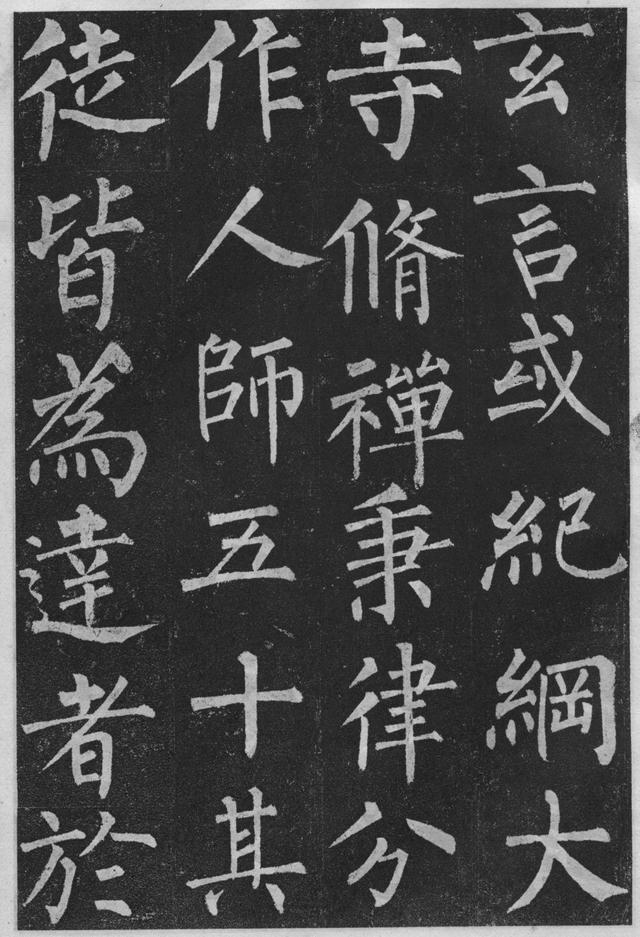 玄言或紀綱大
寺脩禪秉律分
作人師五十其
徒皆為達者於